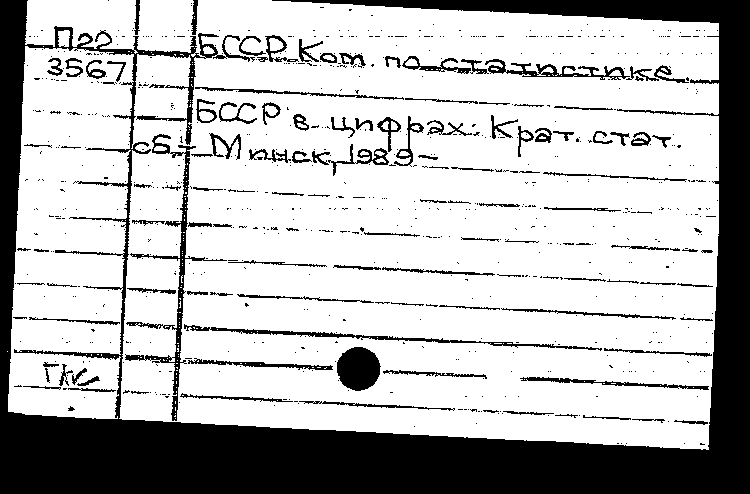 П22
3567
БССР Ком. по статистике
БССР в цифрах: Крат. стат.
сб. – Минск, 1989 –
ГКС